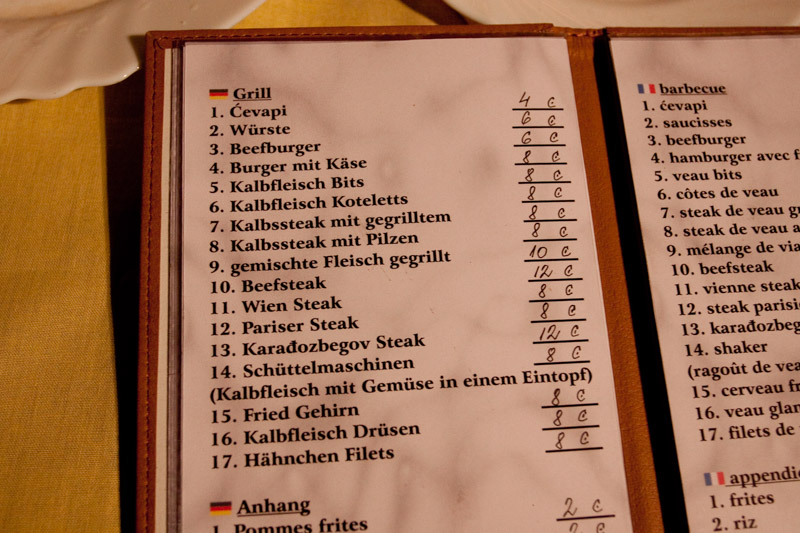 Grill
1. Ćevapi 4 €
2. Würste 6 €
3. Beefburger 6 €
4. Burger mit Käse 8 €
5. Kalbfleisch Bits 8 €
6. Kalbfleisch Koteletts 8 €
7. Kalbssteak mit gegrilltem 8 €
8. Kalbssteak mit Pilzen 8 €
9. gemischte Fleisch gegrillt 10 €
10. Beefsteak 12 €
11. Wien Steak 8 €
12. Pariser Steak 8 €
13. Karađozbegov Steak 12 €
14. Schüttelmaschinen 8 €
(Kalbfleisch mit Gemüse in einem Eintopf)
15. Fried Gehirn 8 €
16. Kalbfleisch Drüsen 8 €
17. Hähnchen Filets 8 €
Anhang
1. Pommes frites 2 €
2 €
barbecue
1. ćevapi
2. saucisses
3. beefburger
4. hamburger avec f
5. veau bits
6. côtes de veau
7. steak de veau g
8. steak de veau a
9. mélange de via
10. beefsteak
11. vienne steak
12. steak parisi
13. karađozbeg
14. shaker
(ragoût de vea
15. cerveau fr
16. veau glan
17. filets de
appendic
1. frites
2. riz